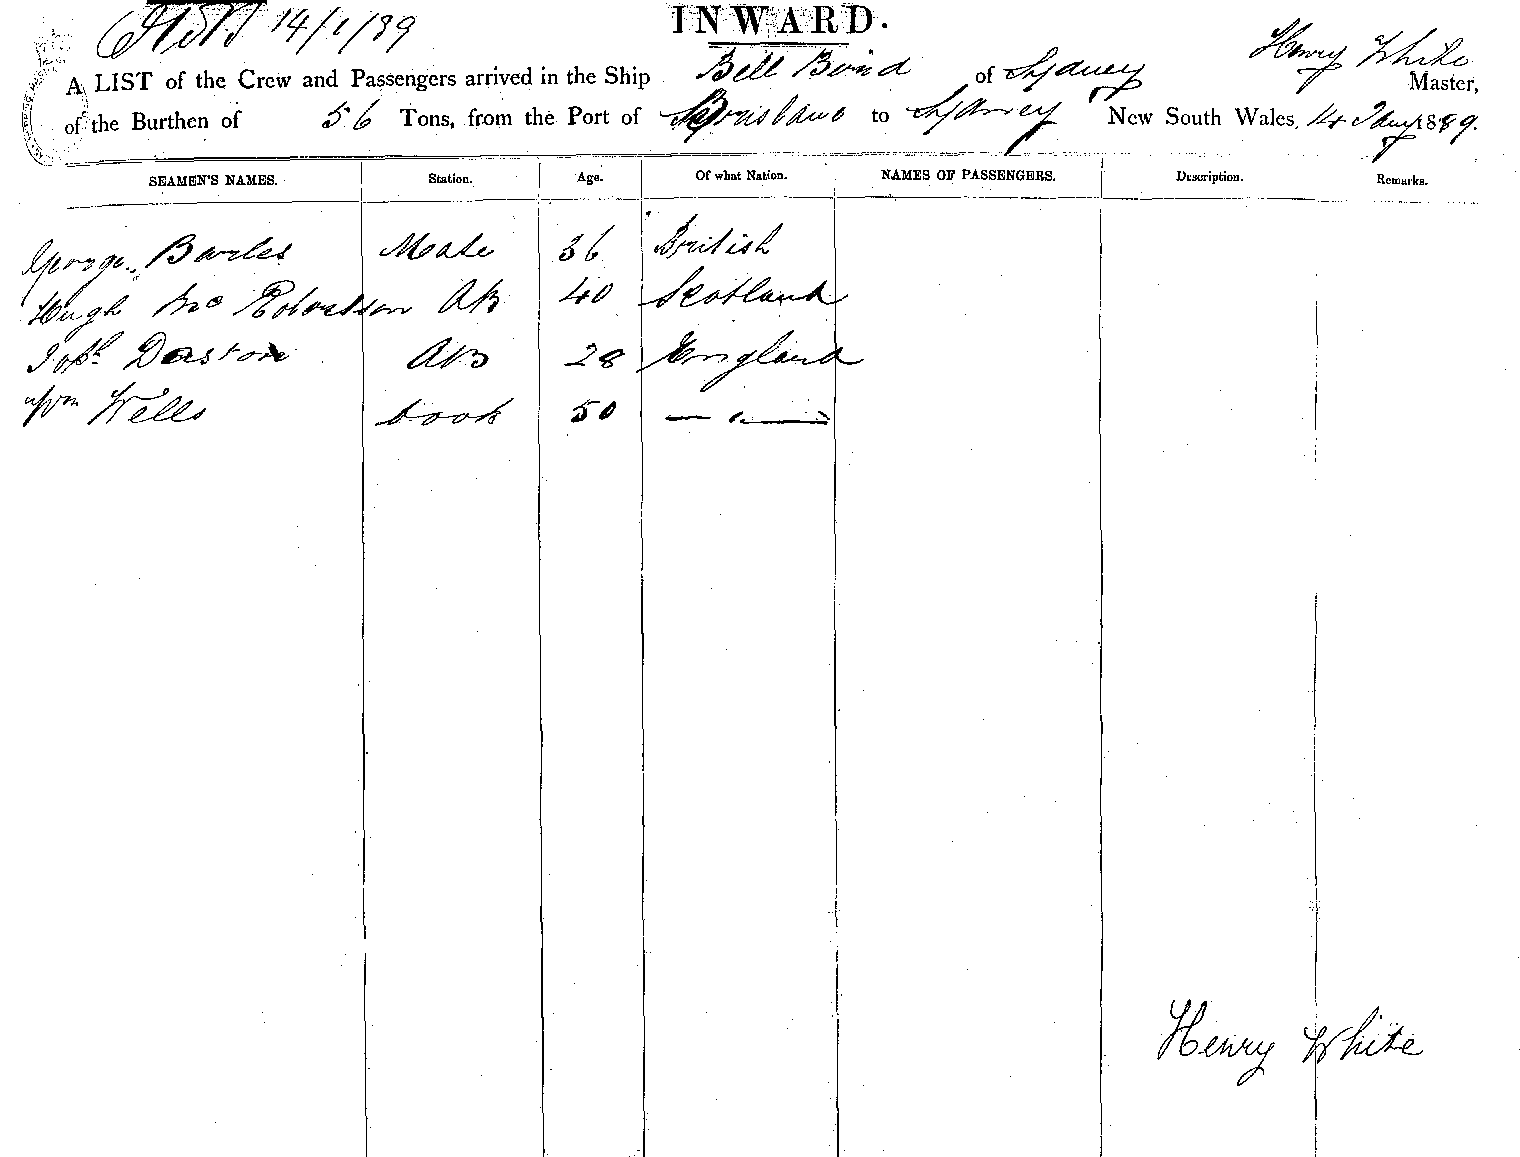 14/1/89
INWARD.
A LIST of the Crew and Passengers arrived in the Ship Bell Bird of Sydney Henry White Master,
of the Burthen of 56 Tons, from the Port of Brisbane to Sydney New South Wales, 14 Jany 1889.
SEAMEN'S NAMES. Station. Age. Of what Nation. NAMES OF PASSENGERS. Description. Remarks.
George Mate 36 British
Hugh Mc Robertson AB 40 Scotland
AB 28 England
Wm Wells Cook 50 — " —
Henry White